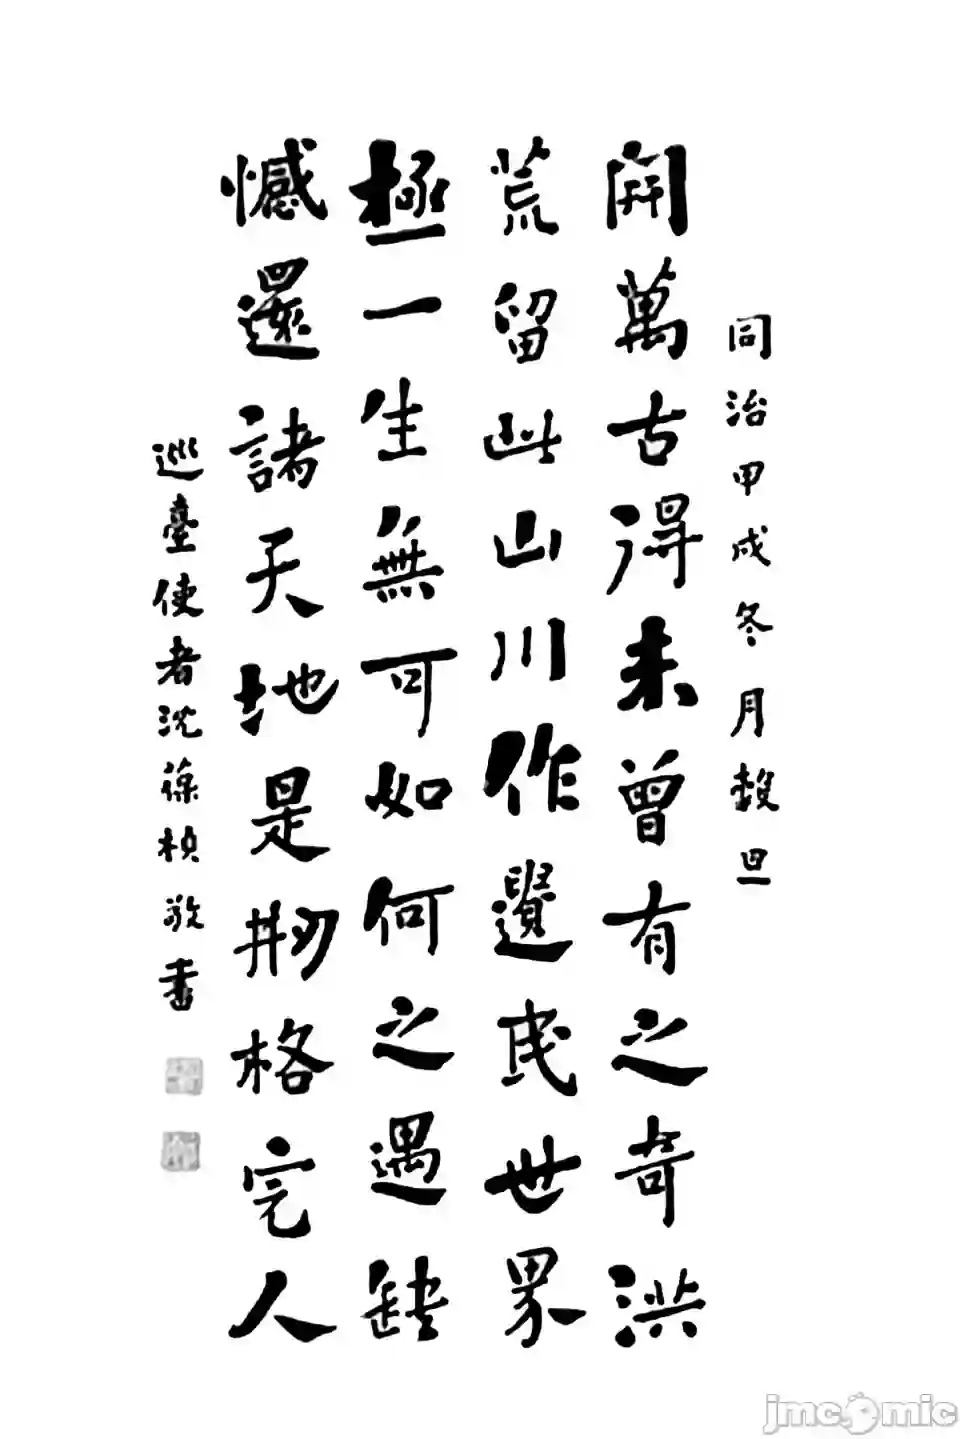 同治甲戌冬月穀旦
開萬古得未曾有之奇洪
荒留此山川作遺民世界
極一生無可如何之遇缺
憾還諸天地是刱格完人
巡臺使者沈葆楨敬書
jmcomic